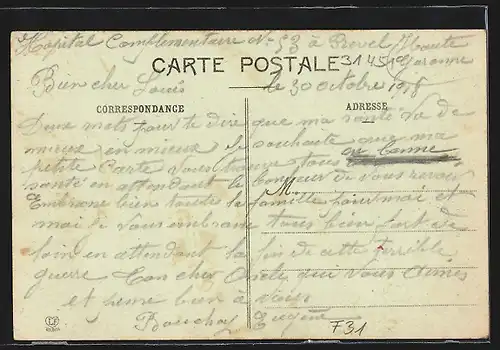 Hopital Complementaire No 53 à Revel (Haute
Garonne
CARTE POSTALE 3145
Bien cher Louis
le 30 octobre 1918
CORRESPONDANCE ADRESSE
Deux mots pour te dire que ma santé va de
mieux en mieux Je souhaite que ma
petite Carte vous trouve tous en bonne
santé en attendant le bonheur de vous revoir
M.
Embrasse bien toutes la famille pour moi et
moi Je vous embrasse tous bien fort de
loin en attendant la fin de cette terrible
guerre Ton cher Oncle qui vous aimes
et pense bien à vous
Eugène
F31